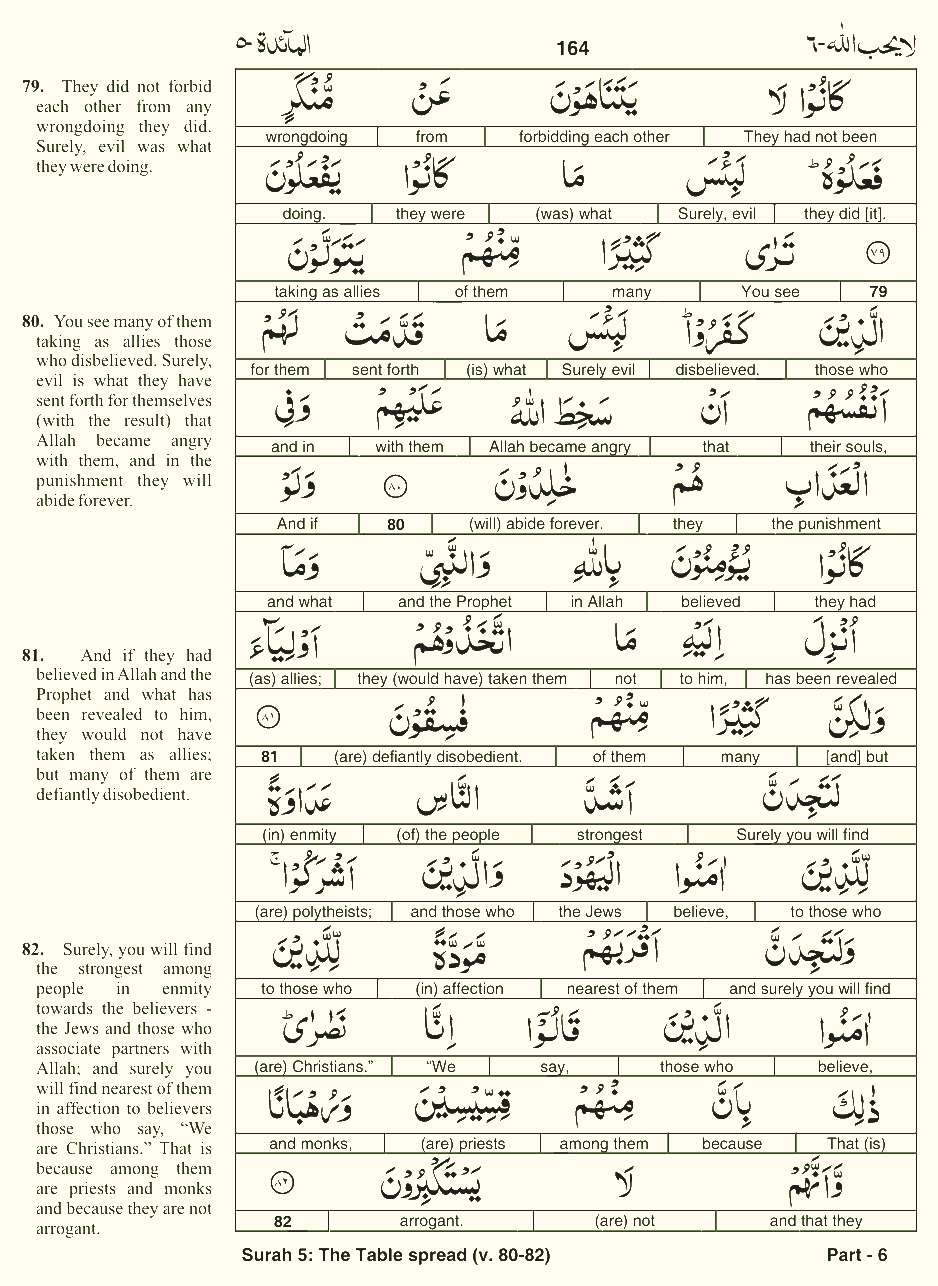 المآئدة-٥ 164 لا يحب الله-٦
79. They did not forbid
each other from any
wrongdoing they did.
Surely, evil was what
they were doing.
80. You see many of them
taking as allies those
who disbelieved. Surely,
evil is what they have
sent forth for themselves
(with the result) that
Allah became angry
with them, and in the
punishment they will
abide forever.
81. And if they had
believed in Allah and the
Prophet and what has
been revealed to him,
they would not have
taken them as allies;
but many of them are
defiantly disobedient.
82. Surely, you will find
the strongest among
people in enmity
towards the believers -
the Jews and those who
associate partners with
Allah; and surely you
will find nearest of them
in affection to believers
those who say, “We
are Christians.” That is
because among them
are priests and monks
and because they are not
arrogant.
كَانُوْا لَا يَتَنَاهَوْنَ عَنْ مُّنْكَرٍ
wrongdoing from forbidding each other They had not been
فَعَلُوْهُ ؕ لَبِئْسَ مَا كَانُوْا يَفْعَلُوْنَ
doing. they were (was) what Surely, evil they did [it].
۷۹ تَرٰى كَثِيْرًا مِّنْهُمْ يَتَوَلَّوْنَ
taking as allies of them many You see 79
الَّذِيْنَ كَفَرُوْا ؕ لَبِئْسَ مَا قَدَّمَتْ لَهُمْ
for them sent forth (is) what Surely evil disbelieved. those who
اَنْفُسُهُمْ اَنْ سَخِطَ اللّٰهُ عَلَيْهِمْ وَفِى
and in with them Allah became angry that their souls,
الْعَذَابِ هُمْ خٰلِدُوْنَ ۸۰ وَلَوْ
And if 80 (will) abide forever. they the punishment
كَانُوْا يُؤْمِنُوْنَ بِاللّٰهِ وَالنَّبِىِّ وَمَآ
and what and the Prophet in Allah believed they had
اُنْزِلَ اِلَيْهِ مَا اتَّخَذُوْهُمْ اَوْلِيَآءَ
(as) allies; they (would have) taken them not to him, has been revealed
وَلٰكِنَّ كَثِيْرًا مِّنْهُمْ فٰسِقُوْنَ ۸۱
81 (are) defiantly disobedient. of them many [and] but
لَتَجِدَنَّ اَشَدَّ النَّاسِ عَدَاوَةً
(in) enmity (of) the people strongest Surely you will find
لِّلَّذِيْنَ اٰمَنُوا الْيَهُوْدَ وَالَّذِيْنَ اَشْرَكُوْا ۚ
(are) polytheists; and those who the Jews believe, to those who
وَلَتَجِدَنَّ اَقْرَبَهُمْ مَّوَدَّةً لِّلَّذِيْنَ
to those who (in) affection nearest of them and surely you will find
اٰمَنُوا الَّذِيْنَ قَالُوْٓا اِنَّا نَصٰرٰى ؕ
(are) Christians.” “We say, those who believe,
ذٰلِكَ بِاَنَّ مِنْهُمْ قِسِّيْسِيْنَ وَرُهْبَانًا
and monks, (are) priests among them because That (is)
وَّاَنَّهُمْ لَا يَسْتَكْبِرُوْنَ ۸۲
82 arrogant. (are) not and that they
Surah 5: The Table spread (v. 80-82) Part - 6